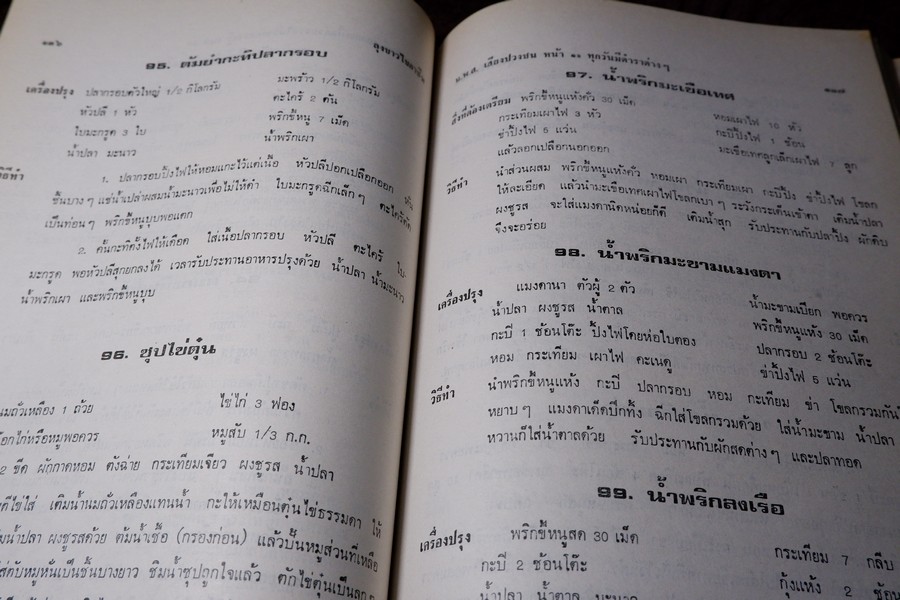 ๑๓๖
ลุงขาวไขอาชีพ
95. ต้มยำกะทิปลากรอบ
เครื่องปรุง ปลากรอบตัวใหญ่ 1/2 กิโลกรัม มะพร้าว 1/2 กิโลกรัม
หัวปลี 1 หัว ตะไคร้ 2 ต้น
ใบมะกรูด 3 ใบ พริกขี้หนู 7 เม็ด
น้ำปลา มะนาว น้ำพริกเผา
วิธีทำ 1. ปลากรอบปิ้งไฟให้หอมแกะไว้แต่เนื้อ หัวปลีปอกเปลือกออก หั่น
ชิ้นบางๆ แช่น้ำเปล่าผสมน้ำมะนาวเพื่อไม่ให้ดำ ใบมะกรูดฉีกเล็กๆ ตะไคร้ตัด
เป็นท่อนๆ พริกขี้หนูบุบพอแตก
2. คั้นกะทิตั้งไฟให้เดือด ใส่เนื้อปลากรอบ หัวปลี ตะไคร้ ใบ
มะกรูด พอหัวปลีสุกยกลงได้ เวลารับประทานอาหารปรุงด้วย น้ำปลา น้ำมะนาว
น้ำพริกเผา และพริกขี้หนูบุบ
96. ซุปไข่ตุ๋น
นมถั่วเหลือง 1 ถ้วย ไข่ไก่ 3 ฟอง
ไก่หรือหมูพอควร หมูสับ 1/3 ก.ก.
2 ขีด ผักกาดหอม ตังฉ่าย กระเทียมเจียว ผงชูรส น้ำปลา
ตีไข่ใส่ เติมน้ำนมถั่วเหลืองแทนน้ำ กะให้เหมือนตุ๋นไข่ธรรมดา ให้
น้ำปลา ผงชูรสด้วย ต้มน้ำเชื้อ (กรองก่อน) แล้วปั้นหมูส่วนที่เหลือ
ใส่ตับหมูหั่นเป็นชิ้นบางยาว ชิมน้ำซุปถูกใจแล้ว ตักไข่ตุ๋นเป็น
น.พ.ส. เสียงปวงชน หน้า ๑๑ ทุกวันมีตำราต่างๆ
๑๓๗
97. น้ำพริกมะเขือเทศ
สิ่งที่ต้องเตรียม พริกขี้หนูแห้งคั่ว 30 เม็ด หอมเผาไฟ 10 หัว
กระเทียมเผาไฟ 3 หัว กะปิปิ้งไฟ 1 ช้อน
ข่าปิ้งไฟ 5 แว่น มะเขือเทศลูกเล็กเผาไฟ 7 ลูก
แล้วลอกเปลือกนอกออก
วิธีทำ นำส่วนผสม พริกขี้หนูแห้งคั่ว หอมเผา กระเทียมเผา กะปิปิ้ง ข่าปิ้งไฟ โขลก
ให้ละเอียด แล้วนำมะเขือเทศเผาไฟโขลกเบาๆ ระวังกระเด็นเข้าตา เติมน้ำปลา
ผงชูรส จะใส่แมงดานิดหน่อยก็ดี เติมน้ำสุก รับประทานกับปลาปิ้ง ผักดิบ
จึงจะอร่อย
98. น้ำพริกมะขามแมงดา
เครื่องปรุง แมงดานา ตัวผู้ 2 ตัว น้ำมะขามเปียก พอควร
น้ำปลา ผงชูรส น้ำตาล พริกขี้หนูแห้ง 30 เม็ด
กะปิ 1 ช้อนโต๊ะ ปิ้งไฟโดยห่อใบตอง ปลากรอบ 2 ช้อนโต๊ะ
หอม กระเทียม เผาไฟ คะเนดู ข่าปิ้งไฟ 5 แว่น
วิธีทำ นำพริกขี้หนูแห้ง กะปิ ปลากรอบ หอม กระเทียม ข่า โขลกรวมกัน
หยาบๆ แมงดาเด็ดปีกทิ้ง ฉีกใส่โขลกรวมด้วย ใส่น้ำมะขาม น้ำปลา
หวานก็ใส่น้ำตาลด้วย รับประทานกับผักสดต่างๆ และปลาทอด
99. น้ำพริกลงเรือ
เครื่องปรุง พริกขี้หนูสด 30 เม็ด กระเทียม 7 กลีบ
กะปิ 2 ช้อนโต๊ะ กุ้งแห้ง 2 ช้อน
น้ำปลา น้ำตาล มะนาว